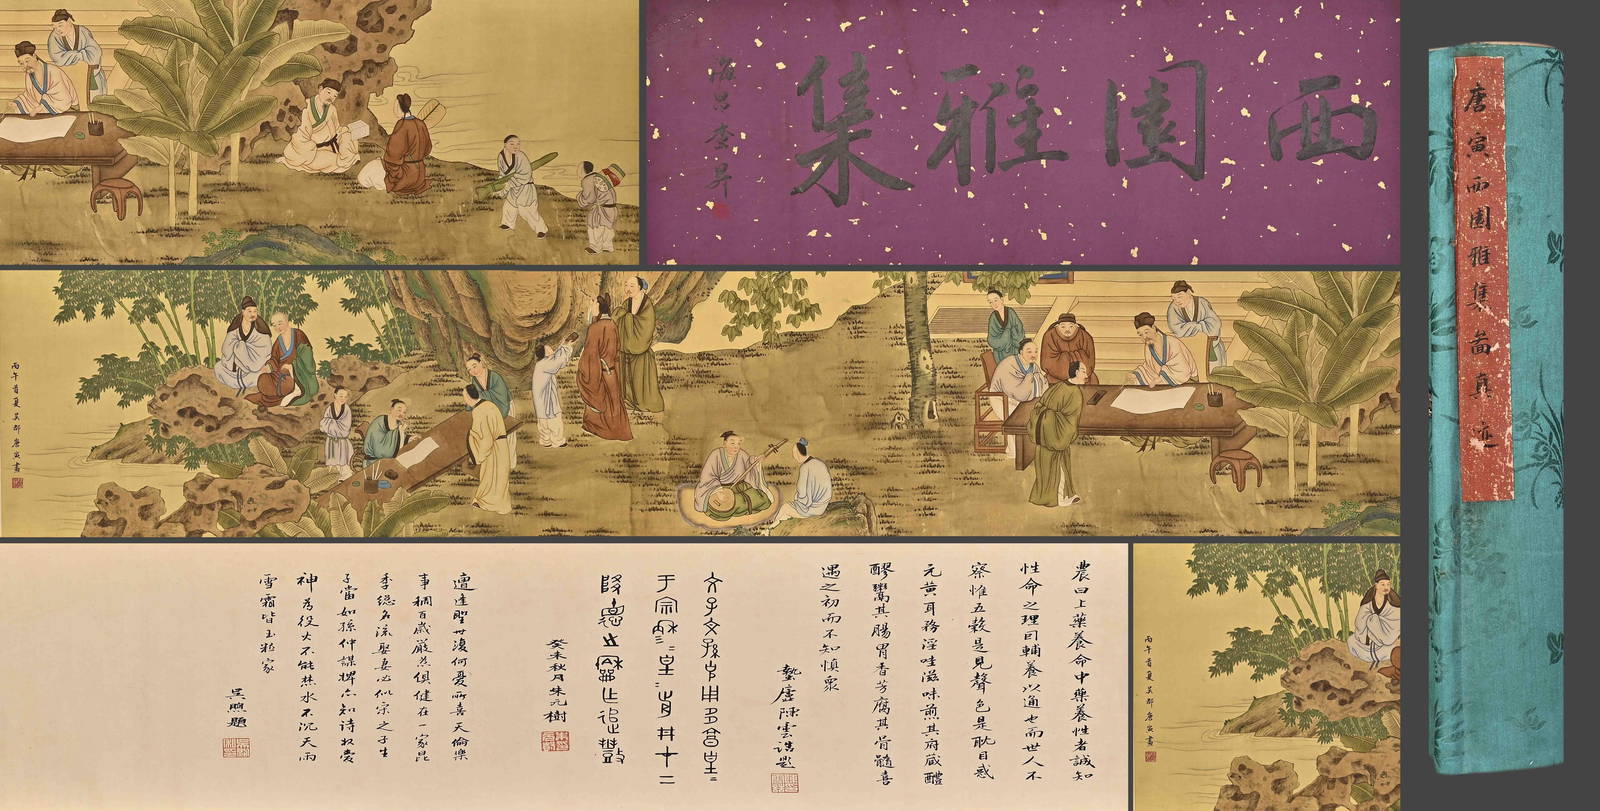 西園雅集
海昌查昇
唐寅西園雅集啚真迹
丙午首夏吴郡唐寅畫
農曰上藥養命中藥養性者誠知
性命之理因輔養以通也而世人不
察惟五穀是見聲色是耽目惑
元黄耳務淫哇滋味煎其府藏醴
醪鬻其腸胃香芳腐其骨髓喜
遇之初而不知慎衆
蟄廬陳雲誥題
文子文孫
癸未秋月朱元樹
逵聖世復何憂所喜天倫樂
事稠百歲嚴慈俱健在一家昆
季總名流娶妻必似宗之子生
子當如孫仲謀婢亦知詩奴愛
神為役火不能焚水不沉天雨
雪霜皆玉粒家
吴煦題
丙午首夏吴郡唐寅畫